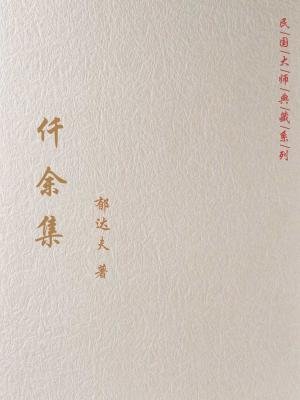 民国大师典藏系列
仟余集
郁达夫 著